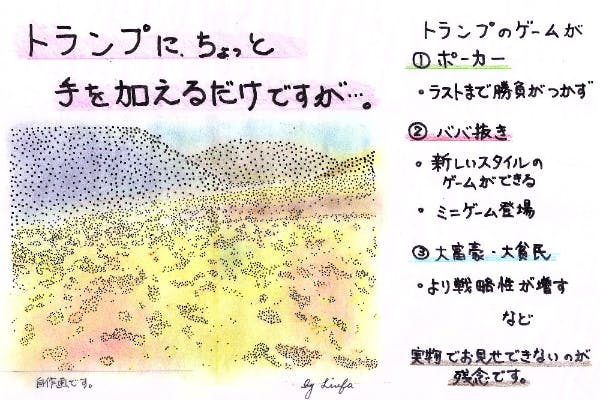 トランプに、ちょっと
手を加えるだけですが…。
トランプのゲームが
① ポーカー
・ラストまで勝負がつかず
② ババ抜き
・新しいスタイルの
ゲームができる
・ミニゲーム登場
③ 大富豪・大貧民
・より戦略性が増す
など
実物でお見せできないのが
残念です。
自作画です。
by Linfa